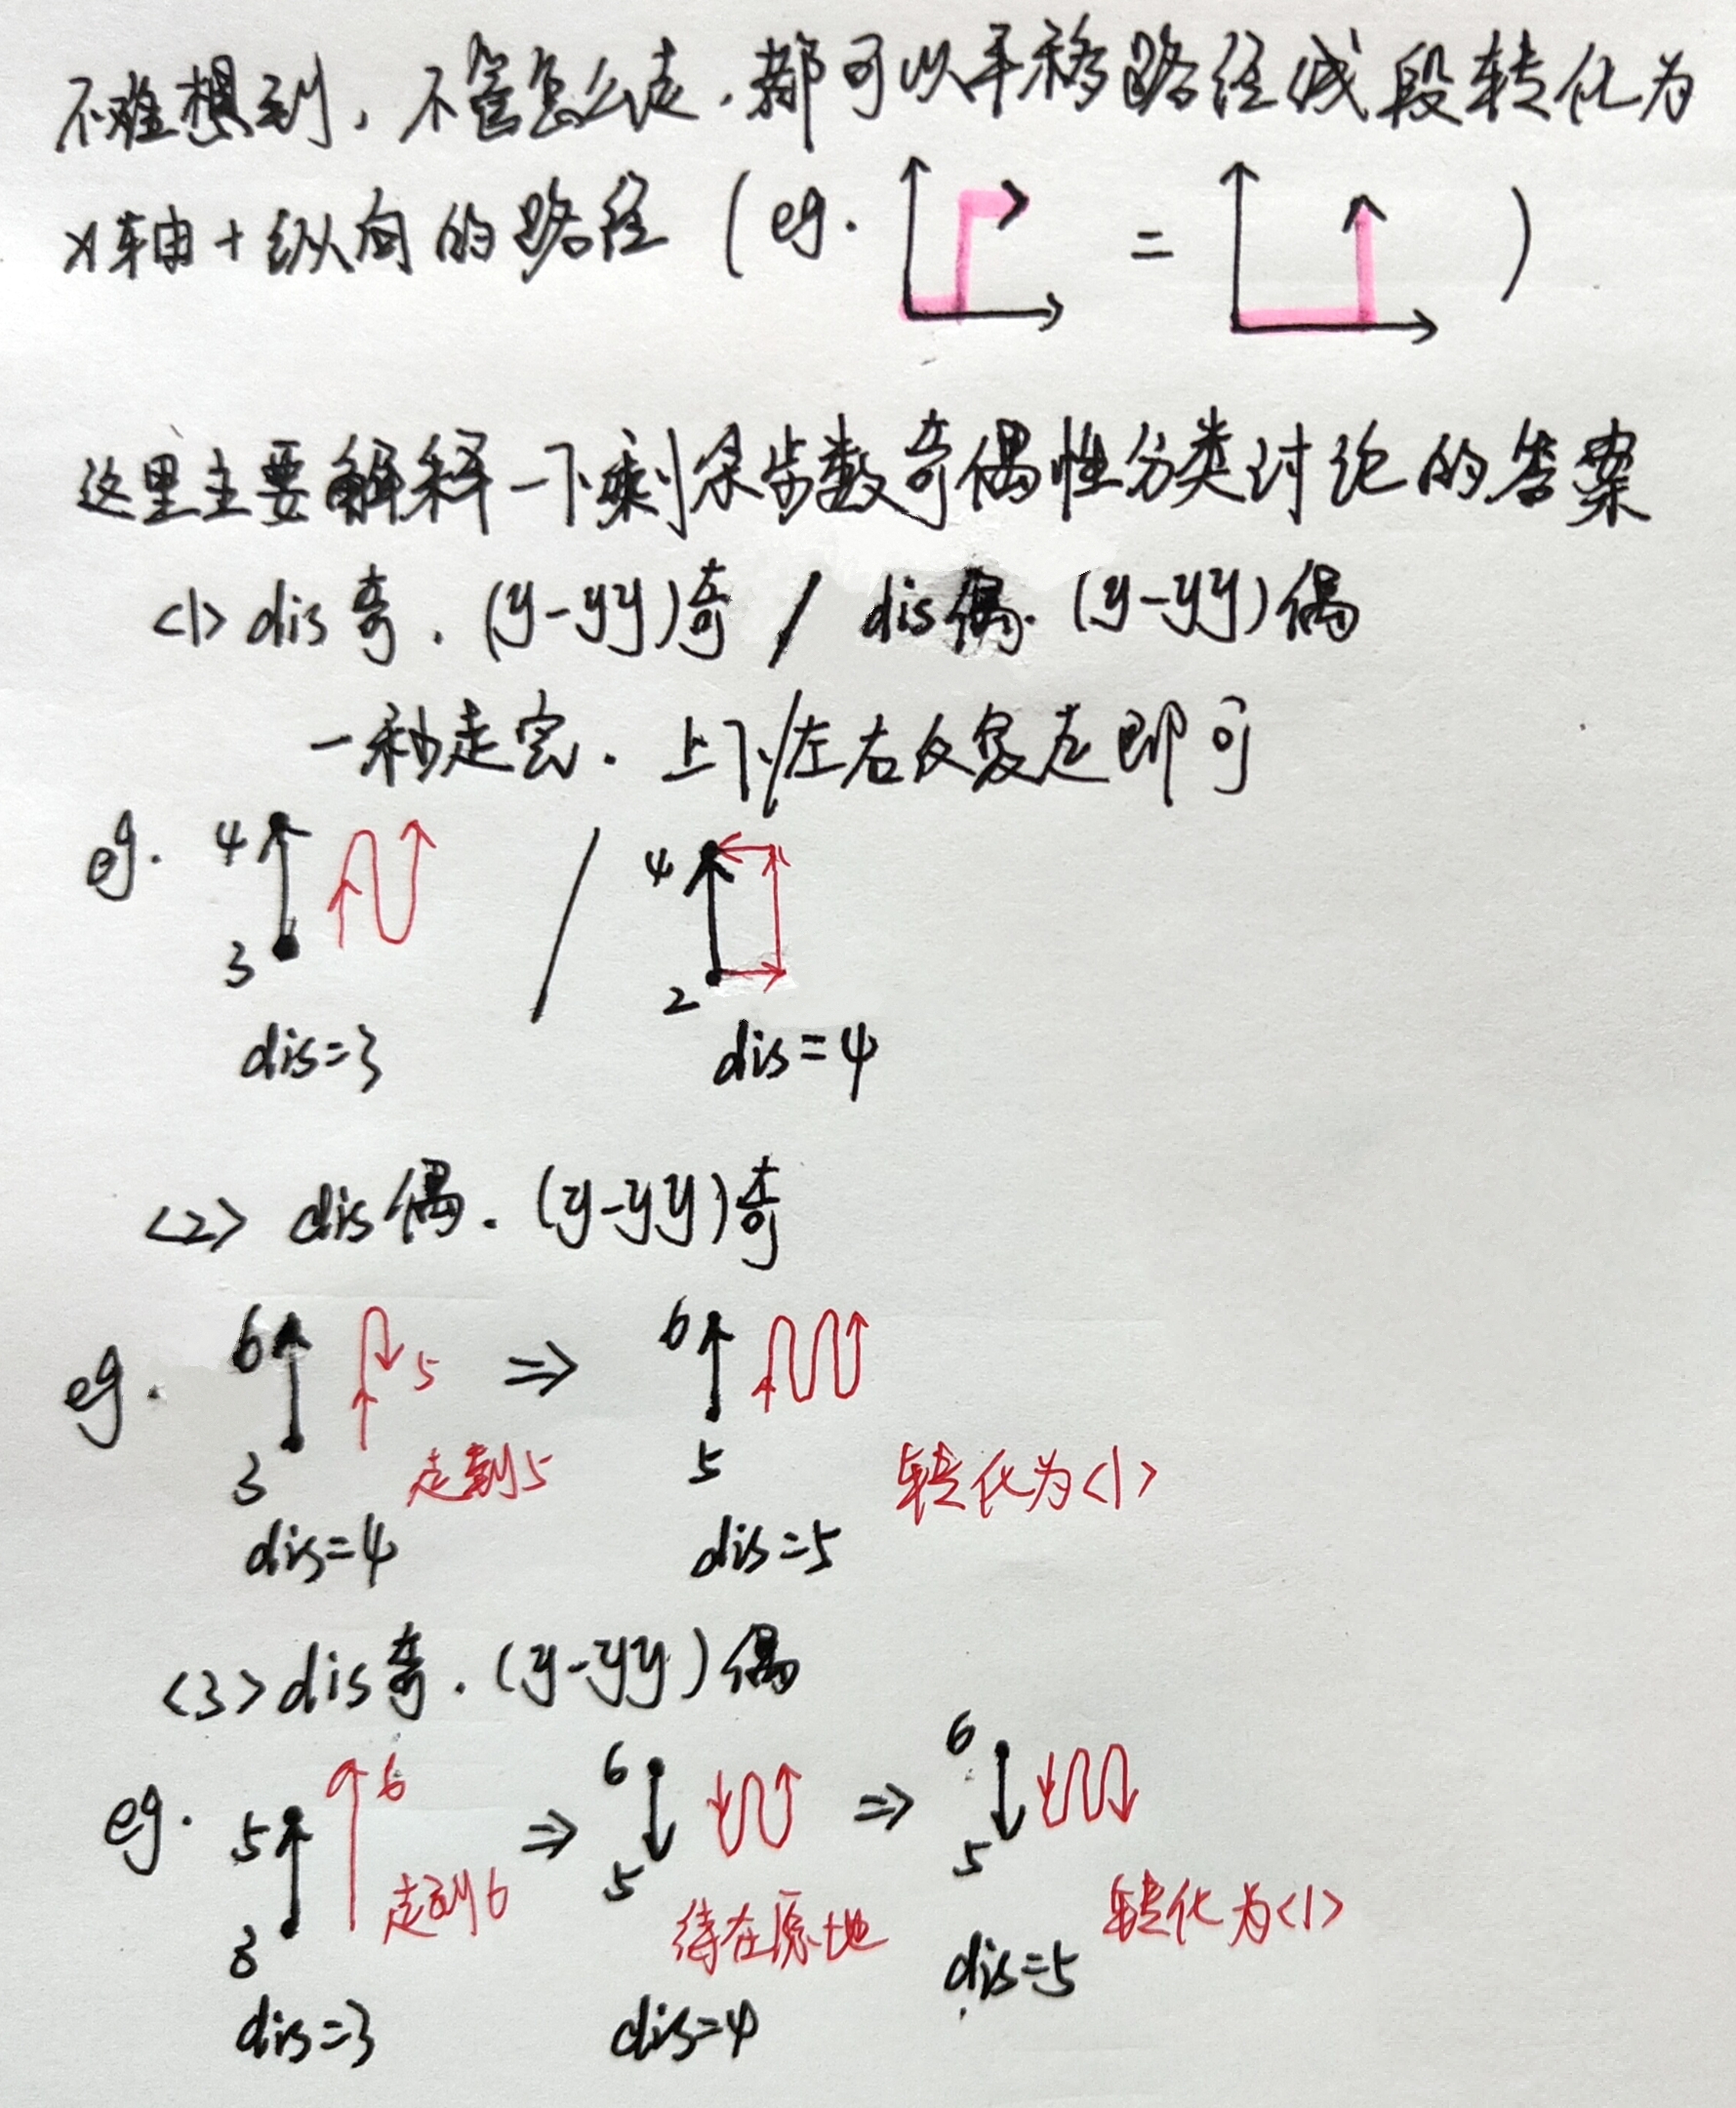 不难想到，不管怎么走，都可以平移路径线段转化为
x轴+纵向的路径 (eg. = )
这里主要解释一下剩余步数奇偶性分类讨论的答案
<1> dis奇. (y-yy)奇 / dis偶. (y-yy)偶
一秒走完. 上下/左右反复走即可
eg. 4 3 dis=3 / 4 2 dis=4
<2> dis偶. (y-yy)奇
eg. 6 3 dis=4 5 走到5 ⇒ 6 5 dis=5 转化为<1>
<3> dis奇. (y-yy)偶
eg. 5 3 dis=3 6 走到6 ⇒ 6 5 待在原地 dis=4 ⇒ 6 5 dis=5 转化为<1>